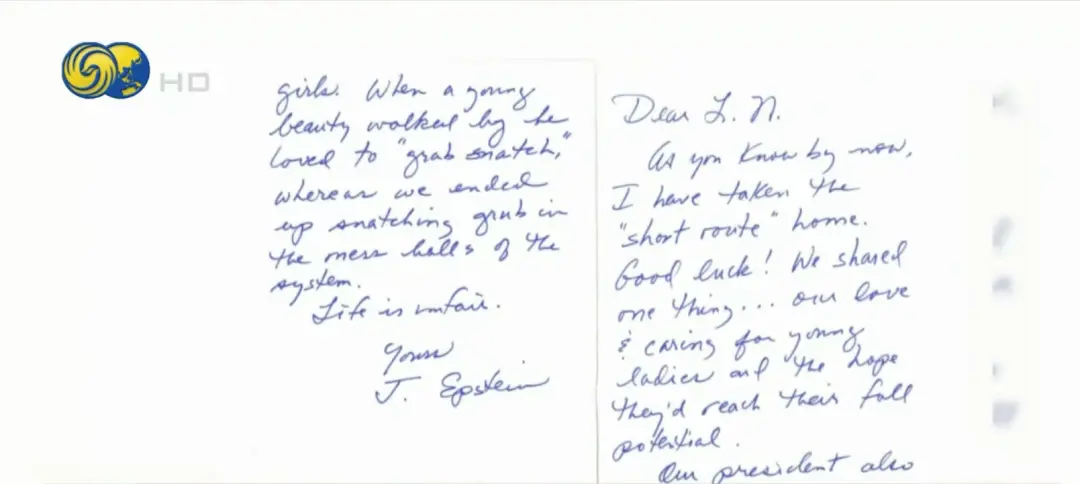 HD
girls. When a young
beauty walked by he
loved to "grab snatch,"
whereas we ended
up snatching grub in
the mess halls of the
system.
Life is unfair.
Yours
J. Epstein
Dear L. N.
As you know by now,
I have taken the
"short route" home.
Good luck! We shared
one thing... our love
& caring for young
ladies and the hope
they'd reach their full
potential.
Our president also